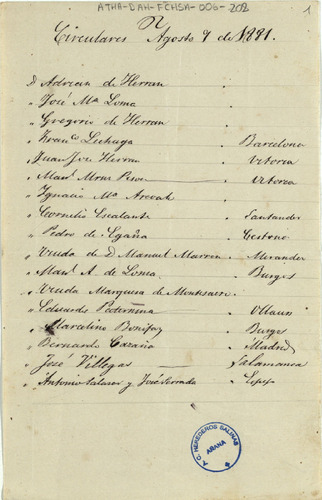 ATHA-DAH-FCHSA-006-202
1
Circulares Agosto 9 de 1891.
D Adrian de Herran
" José Mª Loma
" Gregorio de Herran
" Franco Lechuga Barcelona
" Juan José Herran Vitoria
" Manl Vitoria
" Ignacio Mª
" Cornelio Escalante Santander
" Pedro de Egaña Cestona
" Viuda de D Manuel Marron Miranda
" Manl A. de Loma Burgos
" Viuda Marquesa de
" Eduardo
" Marcelino Bonifaz Burgos
" Bernardo Madrid
" José Villegas Salamanca
" Antonio Salazar y José
A.C. HEREDEROS SALINAS
ARANA